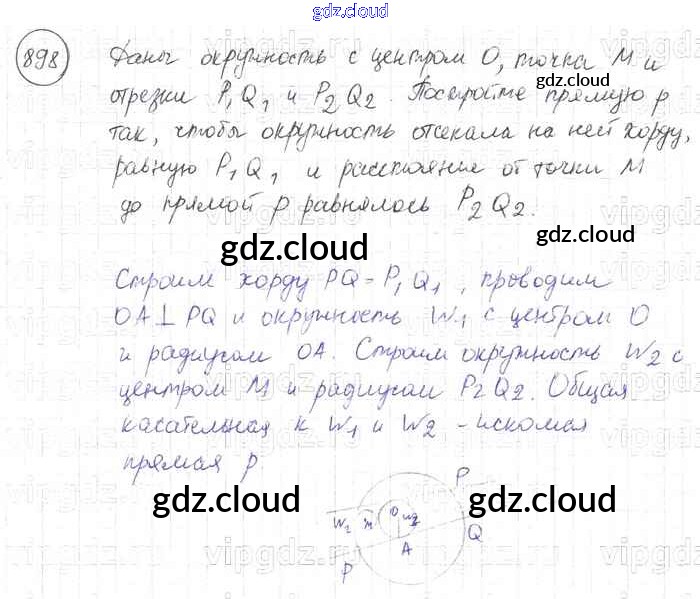 gdz.cloud
898 Даны окружность с центром O, точка M и
отрезки P₁Q₁ и P₂Q₂. Постройте прямую p
так, чтобы окружность отсекала на ней хорду,
равную P₁Q₁, и расстояние от точки M
до прямой p равнялось P₂Q₂.
gdz.cloud
gdz.cloud
gdz.cloud
Строим хорду PQ = P₁Q₁, проводим
OA ⊥ PQ и окружность W₁ с центром O
и радиусом OA. Строим окружность W₂ с
центром M и радиусом P₂Q₂. Общая
касательная к W₁ и W₂ - искомая
прямая p.
gdz.cloud
gdz.cloud
P
W₂ m O
Q
A
P